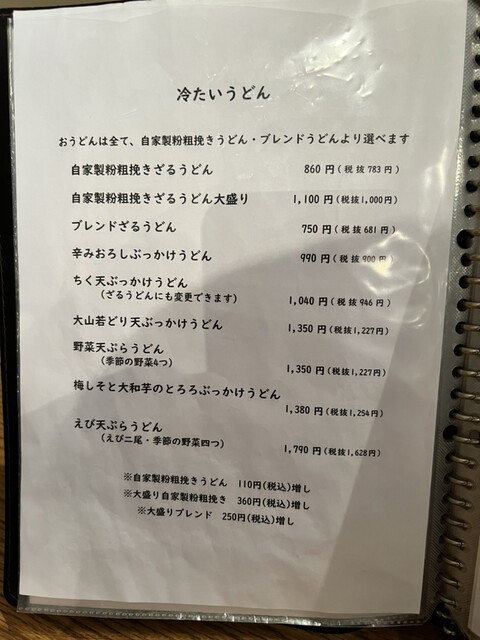 冷たいうどん
おうどんは全て、自家製粉粗挽きうどん・ブレンドうどんより選べます
自家製粉粗挽きざるうどん 860 円(税抜 783 円)
自家製粉粗挽きざるうどん大盛り 1,100 円(税抜1,000円)
ブレンドざるうどん 750 円(税抜 681 円)
辛みおろしぶっかけうどん 990 円(税抜 900 円)
ちく天ぶっかけうどん
(ざるうどんにも変更できます) 1,040 円(税抜 946 円)
大山若どり天ぶっかけうどん 1,350 円(税抜1,227円)
野菜天ぷらうどん
(季節の野菜4つ) 1,350 円(税抜1,227円)
梅しそと大和芋のとろろぶっかけうどん
1,380 円(税抜1,254円)
えび天ぷらうどん
(えび二尾・季節の野菜四つ) 1,790 円(税抜1,628円)
※自家製粉粗挽きうどん 110円(税込)増し
※大盛り自家製粉粗挽き 360円(税込)増し
※大盛りブレンド 250円(税込)増し